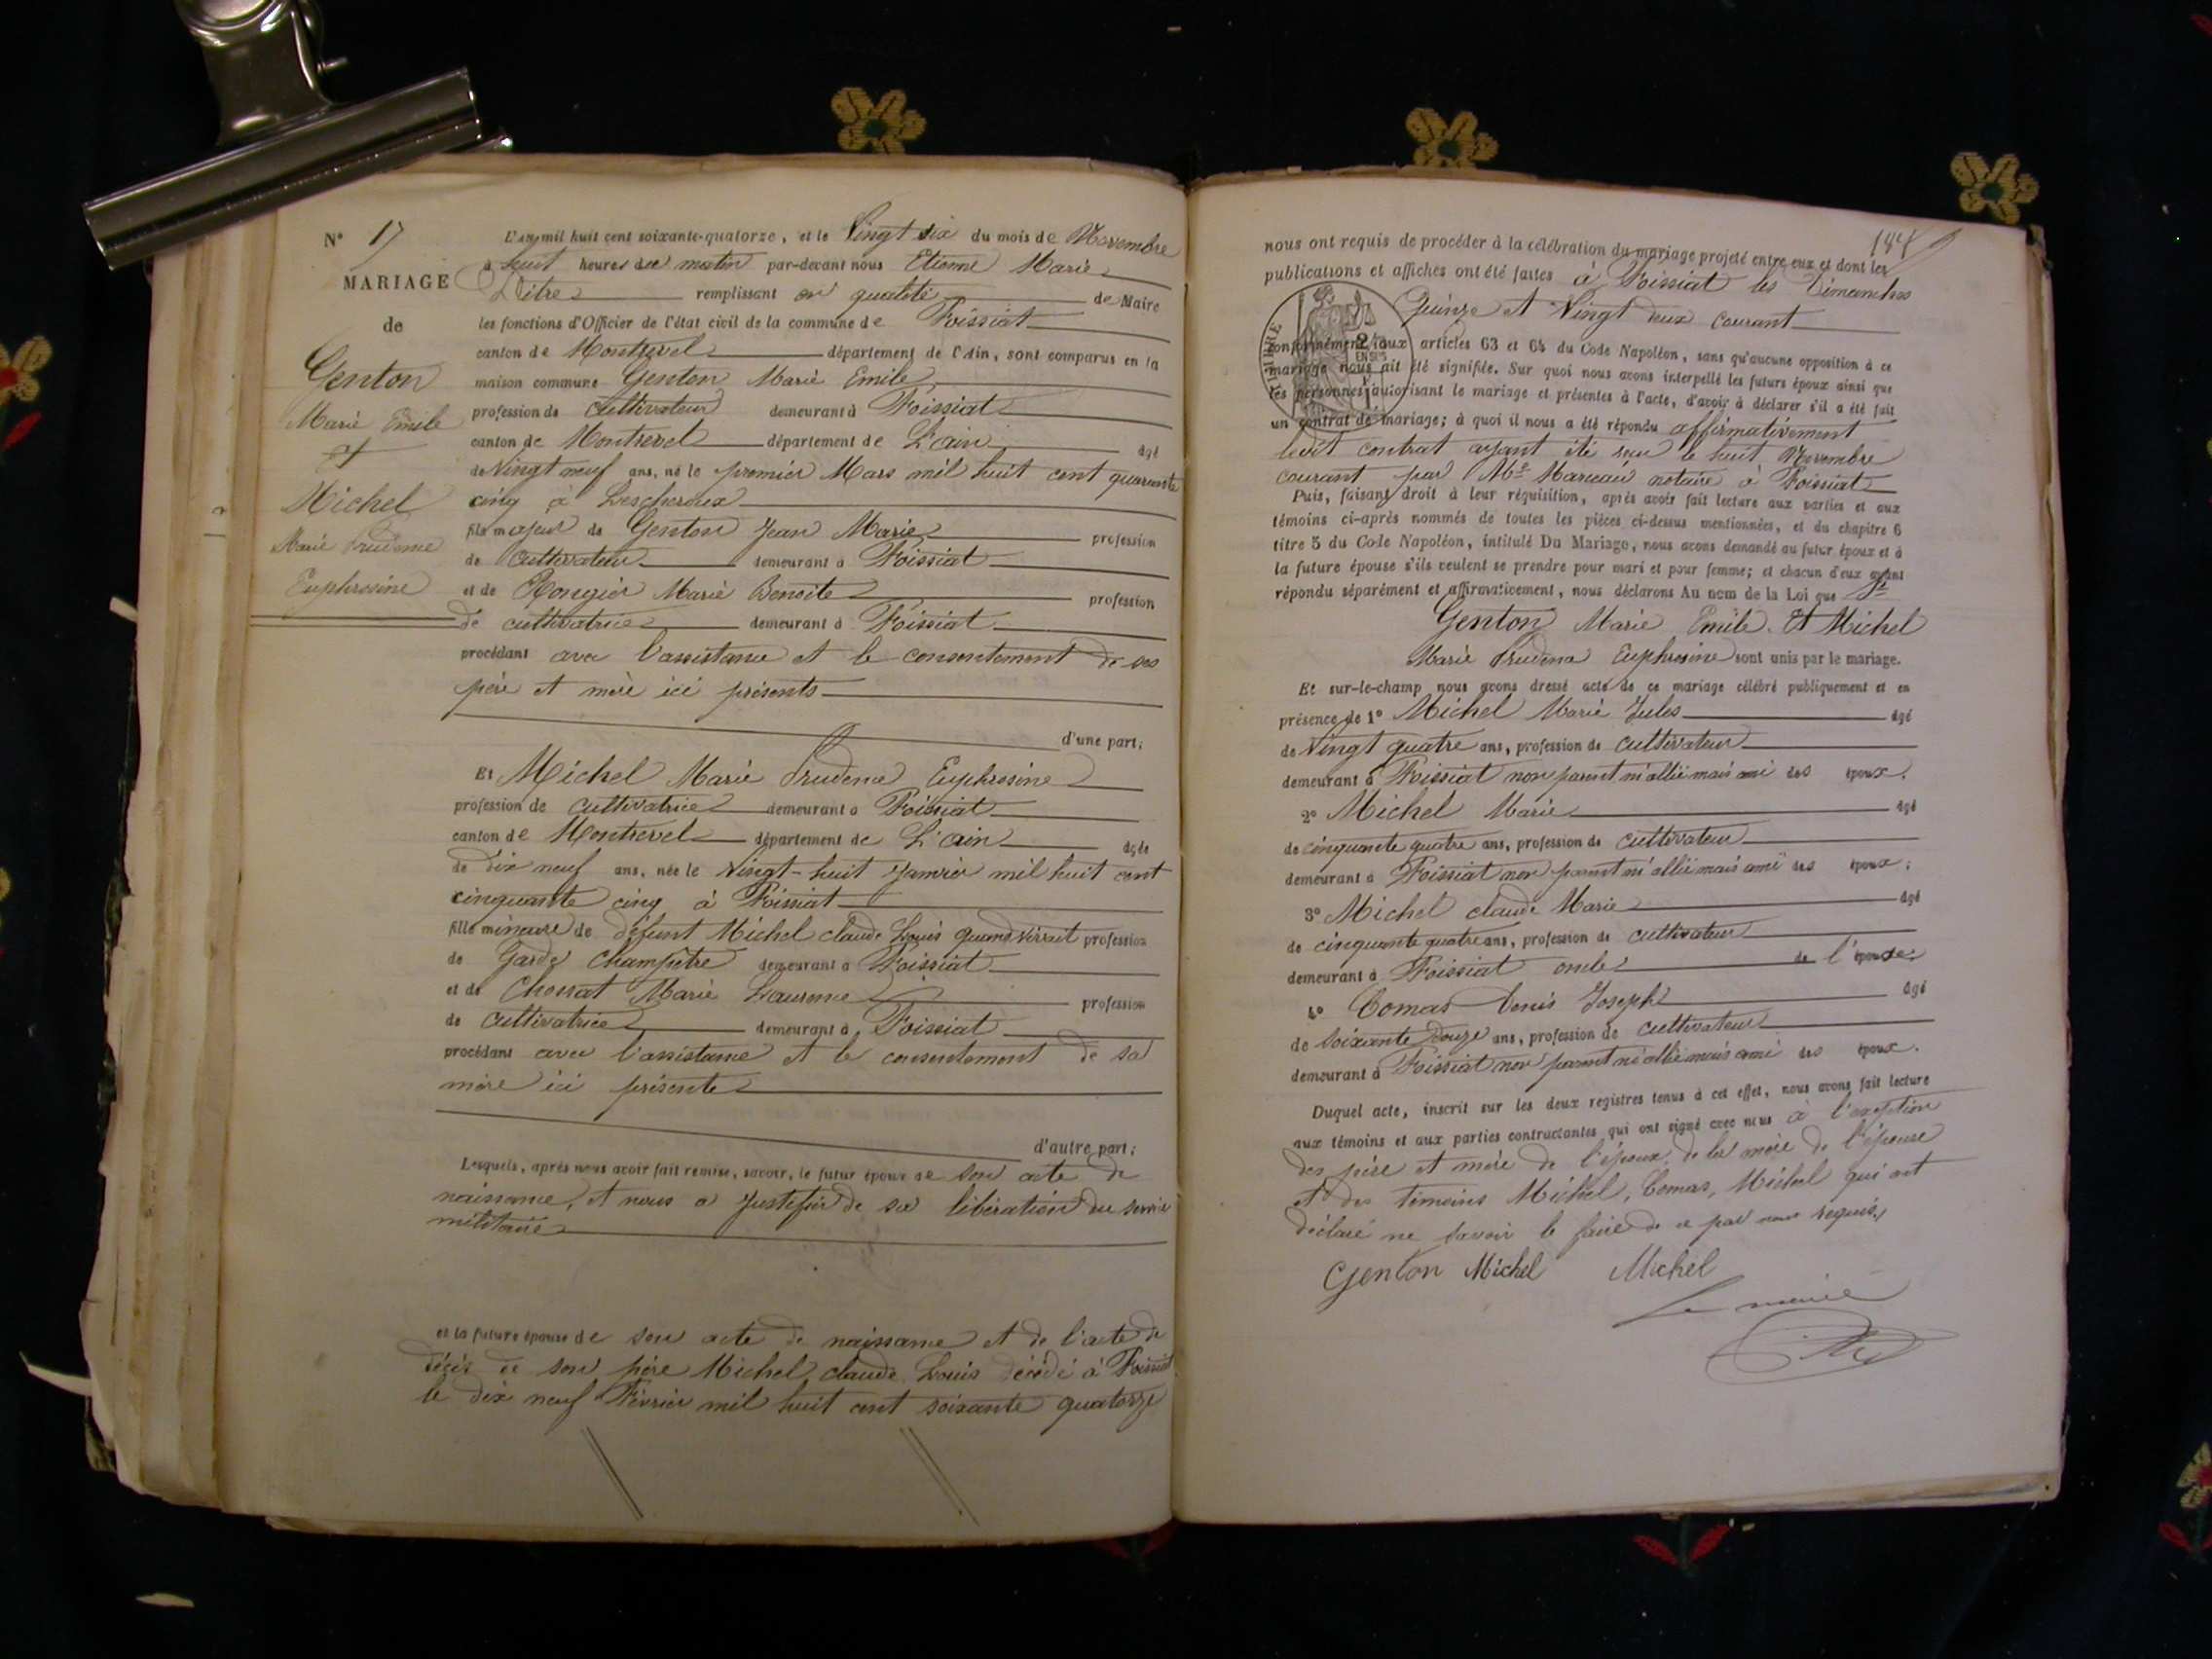 N° 17
MARIAGE
de
Genton
Marie Emile
et
Michel
Marie Prudence
Euphrosine
L'an mil huit cent soixante-quatorze, et le Vingt six du mois de Novembre
à huit heures du matin par-devant nous Etienne Marie
remplissant en qualité de Maire
les fonctions d'Officier de l'état civil de la commune de Foissiat
canton de Montrevel département de l'Ain, sont comparus en la
maison commune Genton Marie Emile
profession de cultivateur demeurant à Foissiat
canton de Montrevel département de L'ain âgé
de Vingt neuf ans, né le premier Mars mil huit cent quarante
cinq à Lescheroux
fils majeur de Genton Jean Marie profession
de cultivateur demeurant à Foissiat
et de Rongier Marie Benoite profession
de cultivatrice demeurant à Foissiat
procédant avec l'assistance et le consentement de ses
père et mère ici présents
d'une part;
Et Michel Marie Prudence Euphrosine
profession de cultivatrice demeurant à Foissiat
canton de Montrevel département de L'ain âgée
de dix neuf ans, née le Vingt-huit Janvier mil huit cent
cinquante cinq à Foissiat
fille mineure de défunt Michel claude Louis quand vivait profession
de Garde champêtre demeurant à Foissiat
et de Chossat Marie Laurence profession
de cultivatrice demeurant à Foissiat
procédant avec l'assistance et le consentement de sa
mère ici présente
d'autre part;
Lesquels, après nous avoir fait remise, savoir, le futur époux de son acte de
naissance, et nous a justifié de sa libération du service
militaire
et la future épouse de son acte de naissance et de l'acte de
décès de son père Michel claude Louis décédé à Foissiat
le dix neuf Février mil huit cent soixante quatorze
184
nous ont requis de procéder à la célébration du mariage projeté entre eux et dont les
publications et affiches ont été faites à Foissiat les Dimanches
Quinze et Vingt deux courant
TIMBRE
conformément aux articles 63 et 64 du Code Napoléon, sans qu'aucune opposition à ce
mariage nous ait été signifiée. Sur quoi nous avons interpellé les futurs époux ainsi que
les personnes autorisant le mariage et présentes à l'acte, d'avoir à déclarer s'il a été fait
un contrat de mariage; à quoi il nous a été répondu affirmativement
ledit contrat ayant été reçu le huit Novembre
courant par Me Marceau notaire à Foissiat
Puis, faisant droit à leur réquisition, après avoir fait lecture aux parties et aux
témoins ci-après nommés de toutes les pièces ci-dessus mentionnées, et du chapitre 6
titre 5 du Code Napoléon, intitulé Du Mariage, nous avons demandé au futur époux et à
la future épouse s'ils veulent se prendre pour mari et pour femme; et chacun d'eux ayant
répondu séparément et affirmativement, nous déclarons Au nom de la Loi que
Genton Marie Emile Et Michel
Marie Prudence Euphrosine sont unis par le mariage.
Et sur-le-champ nous avons dressé acte de ce mariage célébré publiquement et en
présence de 1° Michel Marie Jules âgé
de Vingt quatre ans, profession de cultivateur
demeurant à Foissiat non parent ni allié mais ami des époux.
2° Michel Marie âgé
de cinquante quatre ans, profession de cultivateur
demeurant à Foissiat non parent ni allié mais ami des époux;
3° Michel claude Marie âgé
de cinquante quatre ans, profession de cultivateur
demeurant à Foissiat oncle de l'épouse.
4° Comas Denis Joseph âgé
de soixante Douze ans, profession de cultivateur
demeurant à Foissiat non parent ni allié mais ami des époux.
Duquel acte, inscrit sur les deux registres tenus à cet effet, nous avons fait lecture
aux témoins et aux parties contractantes qui ont signé avec nous à l'exception
des père et mère de l'époux, de la mère de l'épouse
et des témoins Michel, Comas, Michel qui ont
déclaré ne savoir le faire de ce par nous requis.
Genton Michel Michel
Le maire